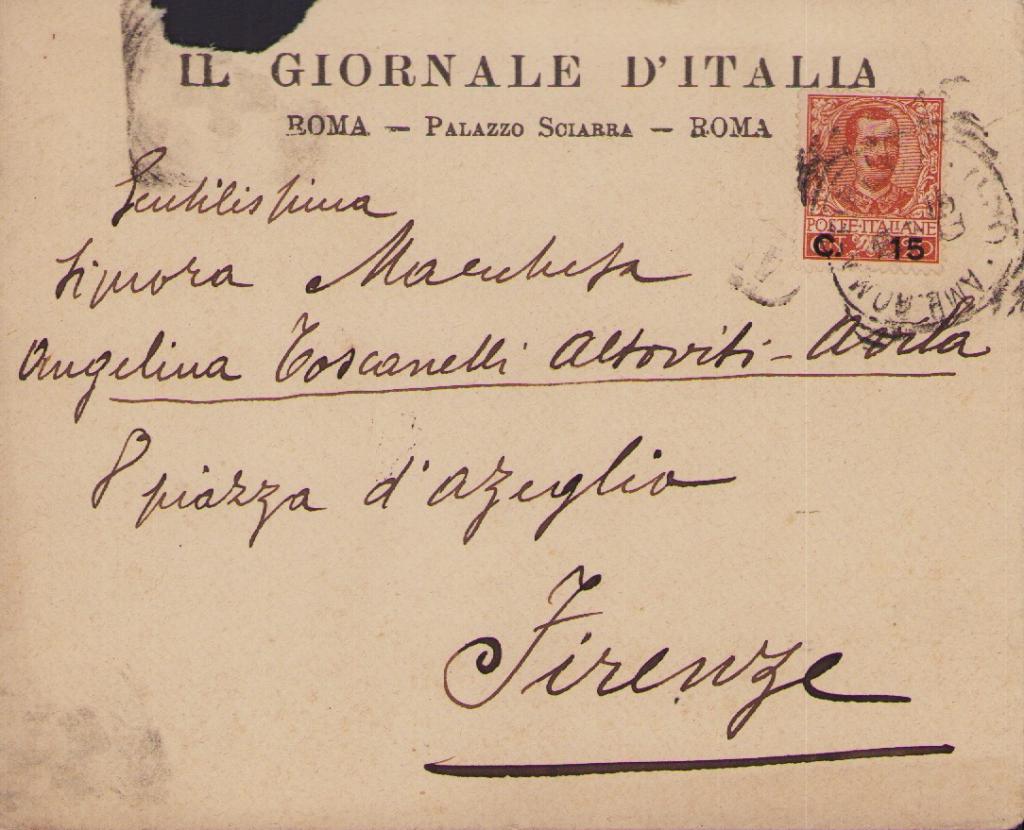 IL GIORNALE D'ITALIA
ROMA — PALAZZO SCIARRA — ROMA
POSTE·ITALIANE
C. 15
AMB. ROM
Gentilissima
Signora Marchesa
Angelina Toscanelli Altoviti-Avila
8 piazza d'Azeglio
Firenze